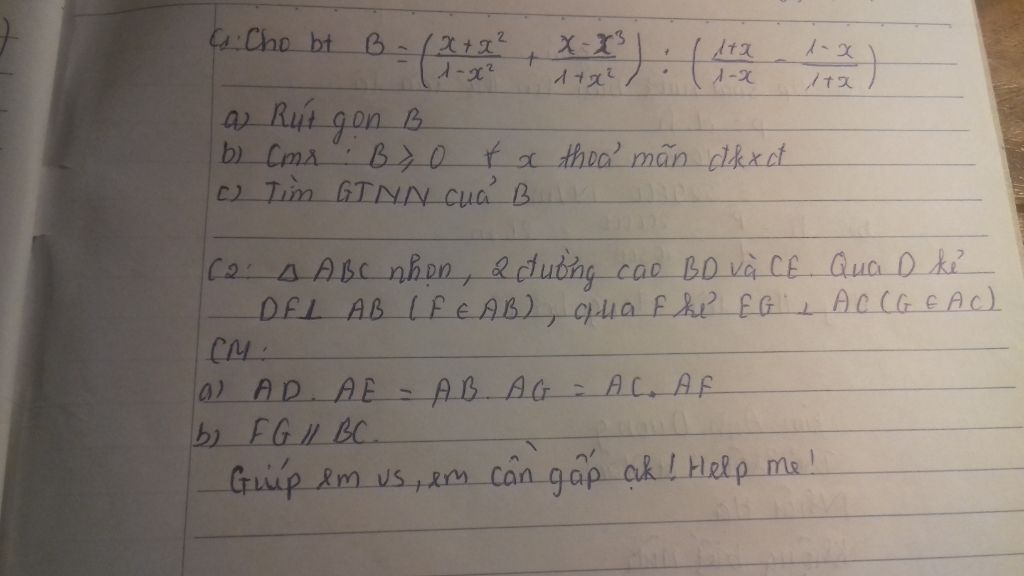 C1: Cho bt B = (x+x²/1-x² + x-x³/1+x²) : (1+x/1-x - 1-x/1+x)
a) Rút gọn B
b) Cmr : B ⩾ 0 ∀ x thoả mãn đkxđ
c) Tìm GTNN cuả B
C2: Δ ABC nhọn, 2 đường cao BD và CE. Qua D kẻ
DF⊥ AB (F ∈ AB), qua E kẻ EG ⊥ AC (G ∈ AC)
CM:
a) AD. AE = AB. AG = AC. AF
b) FG // BC.
Giúp em vs, em cần gấp ạk! Help me!